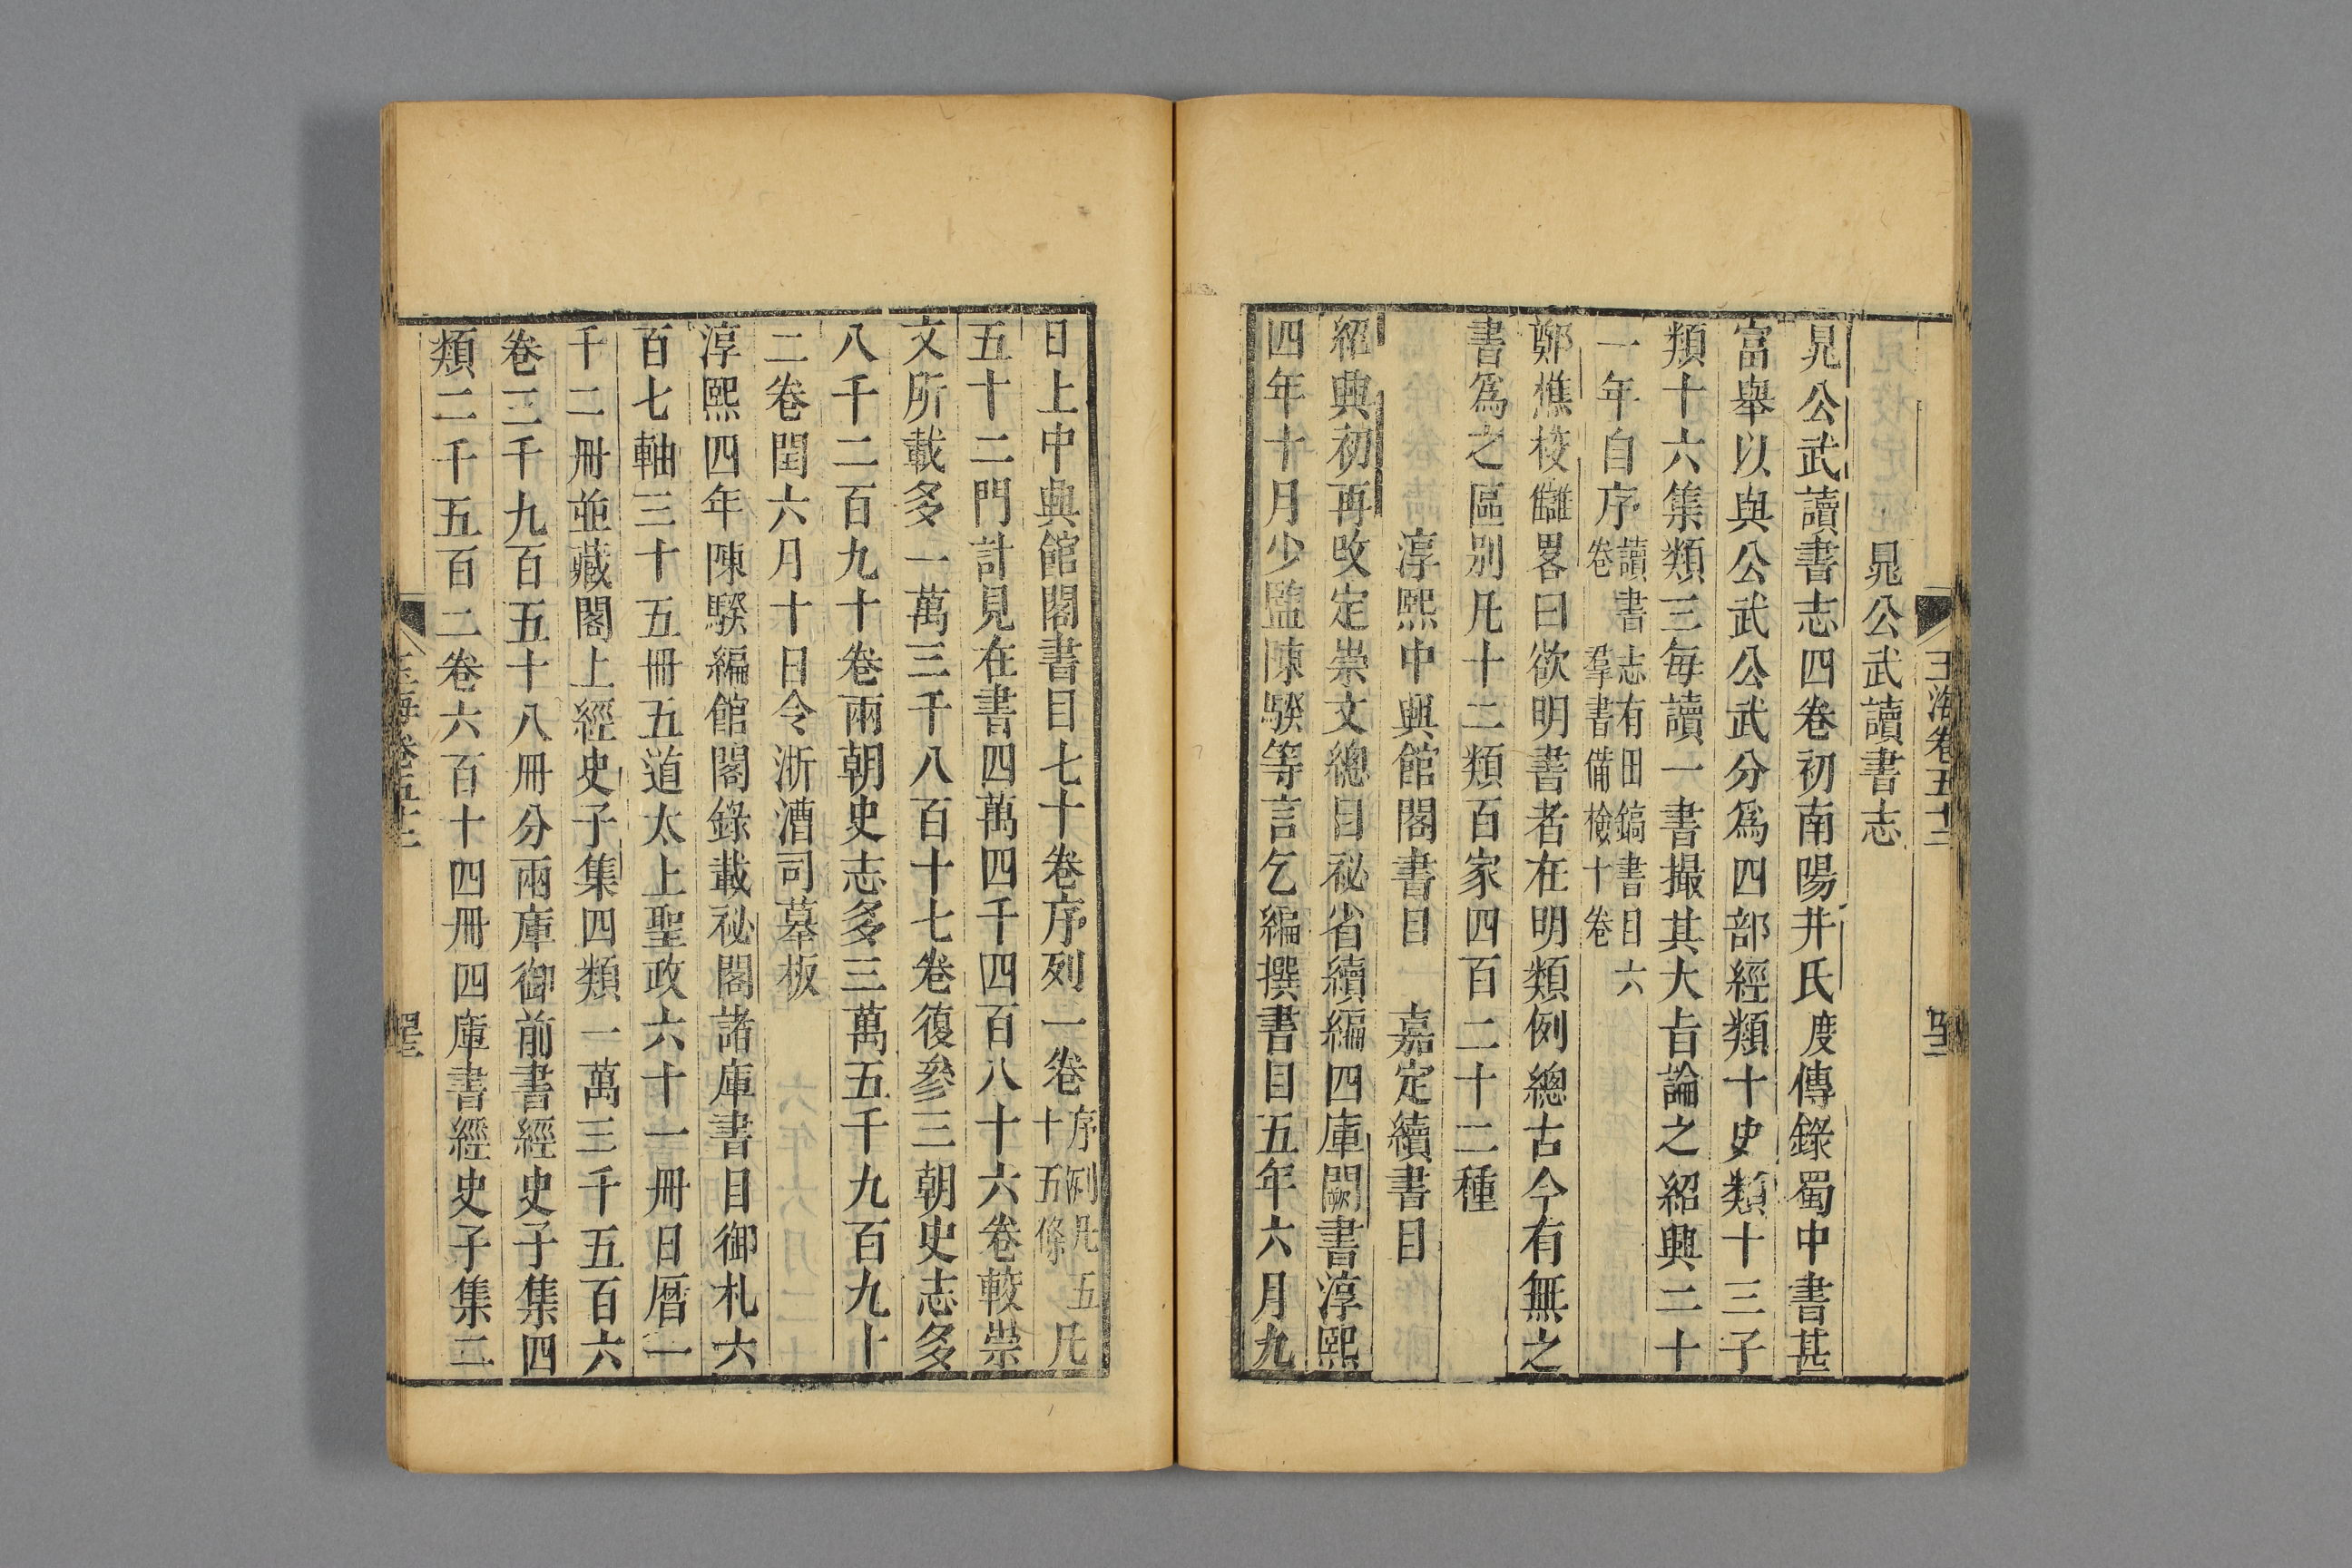 玉海卷五十二
晁公武讀書志
晁公武讀書志四卷初南陽井氏度傳錄蜀中書甚
富舉以與公武公武分爲四部經類十史類十三子
類十六集類三每讀一書撮其大㫖論之紹興二十
一年自序讀書志有田鎬書目六
卷羣書備檢十卷
鄭樵校讎畧曰欲明書者在明類例總古今有無之
書爲之區別凡十二類百家四百二十二種
淳熙中興館閣書目 嘉定續書目
紹興初再攺定崇文總目祕省續編四庫闕書淳熙
四年十月少監陳騤等言乞編撰書目五年六月九
日上中興館閣書目七十卷序列一卷序列凡五
十五條凡
五十二門計見在書四萬四千四百八十六卷較崇
文所載多一萬三千八百十七卷復參三朝史志多
八千二百九十卷兩朝史志多三萬五千九百九十
二卷閏六月十日令浙漕司摹板
淳熙四年陳騤編館閣錄載祕閣諸庫書目御札六
百七軸三十五冊五道太上聖政六十一冊日曆一
千二冊並藏閣上經史子集四類一萬三千五百六
卷三千九百五十八冊分兩庫御前書經史子集四
類二千五百二卷六百十四冊四庫書經史子集二